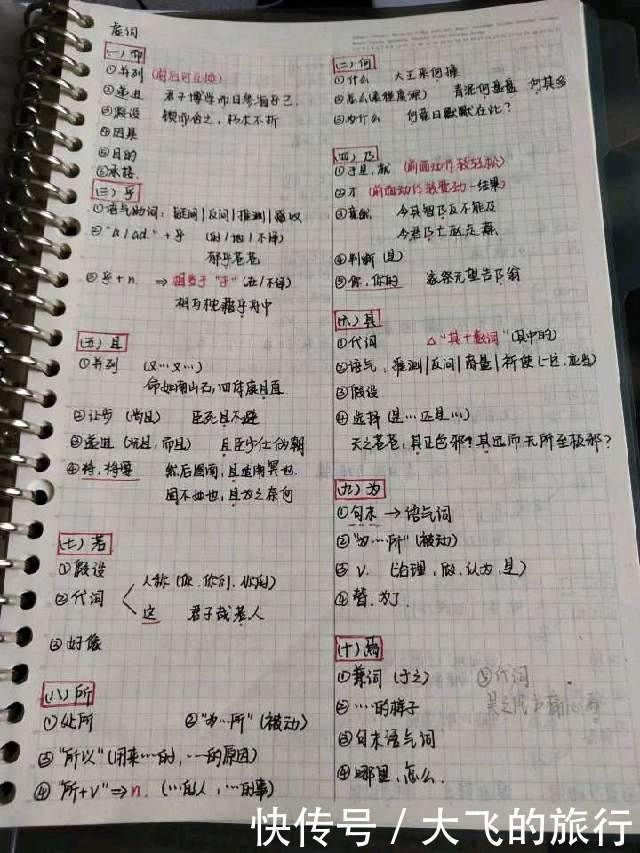 虚词
(一)而
①并列 (前后可互换)
②递进 君子博学而日参省乎己
③假设 锲而舍之，朽木不折
④因果
⑤目的
⑥承接
(三)乎
①语气助词：疑问|反问|推测|感叹
②"a/ad." + 乎 (的/地/不译)
郁乎苍苍
③乎+n. ⇒ 相当于"于" (在/不译)
相与枕藉乎舟中
(五)且
①并列 (又…又…)
命如南山石，四体康且直
②让步 (尚且) 臣死且不避
③递进 (况且，而且) 且臣少仕伪朝
④将，将要 然后图南，且适南冥也
因不如也，且为之奈何
(七)若
①假设
②代词
人称 (你，你们，你的)
这 君子哉若人
③好像
(八)所
①处所 ②"为…所" (被动)
③"所以" (用来…的，…的原因)
④"所+v" ⇒ n. (…的人，…的事)
(二)何
①什么 大王来何操
②怎么 青泥何盘盘 何其多
③为什么 何薄日默默在此？
(四)乃
①于是，就
②才
③竟然 今其智乃反不能及
今君乃亡赵走燕
④判断 (是)
⑤你，你的 家祭无望告乃翁
(六)其
①代词 △"其+数词" (其中的)
②语气，推测|反问|商量|祈使
③假设
④选择 (是…还是…)
天之苍苍，其正色邪？其远而无所至极邪？
(九)为
①句末 → 语气词
②"为…所" (被动)
③v. (治理，做，认为，是)
④替，为了
(十)焉
①兼词 (于之) ⑤代词
②…的样子
③句末语气词
④哪里，怎么
快传号 / 大飞的旅行